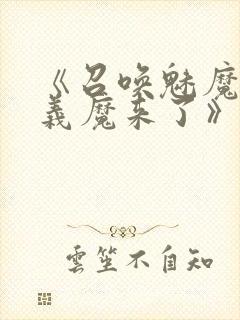 《召唤魅魔
義魔来了》
雲笙不自知